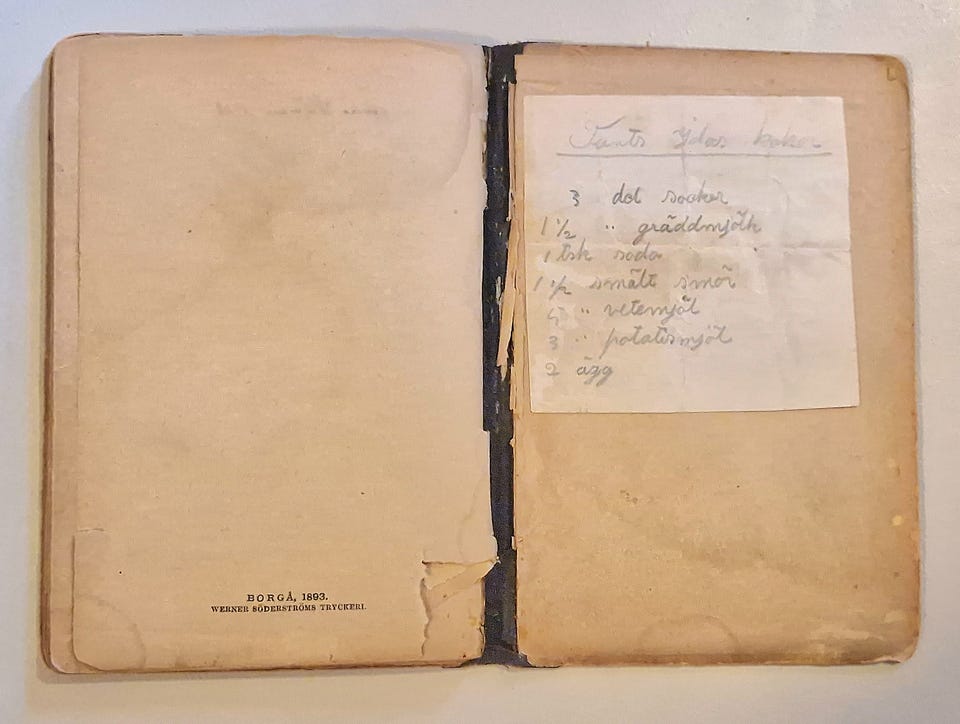 BORGÅ, 1893.
WERNER SÖDERSTRÖMS TRYCKERI.
Tants Idas kakor
3 dcl socker
1 ½ " gräddmjölk
1 tsk soda
1 ½ smält smör
" vetemjöl
3 " potatismjöl
2 ägg